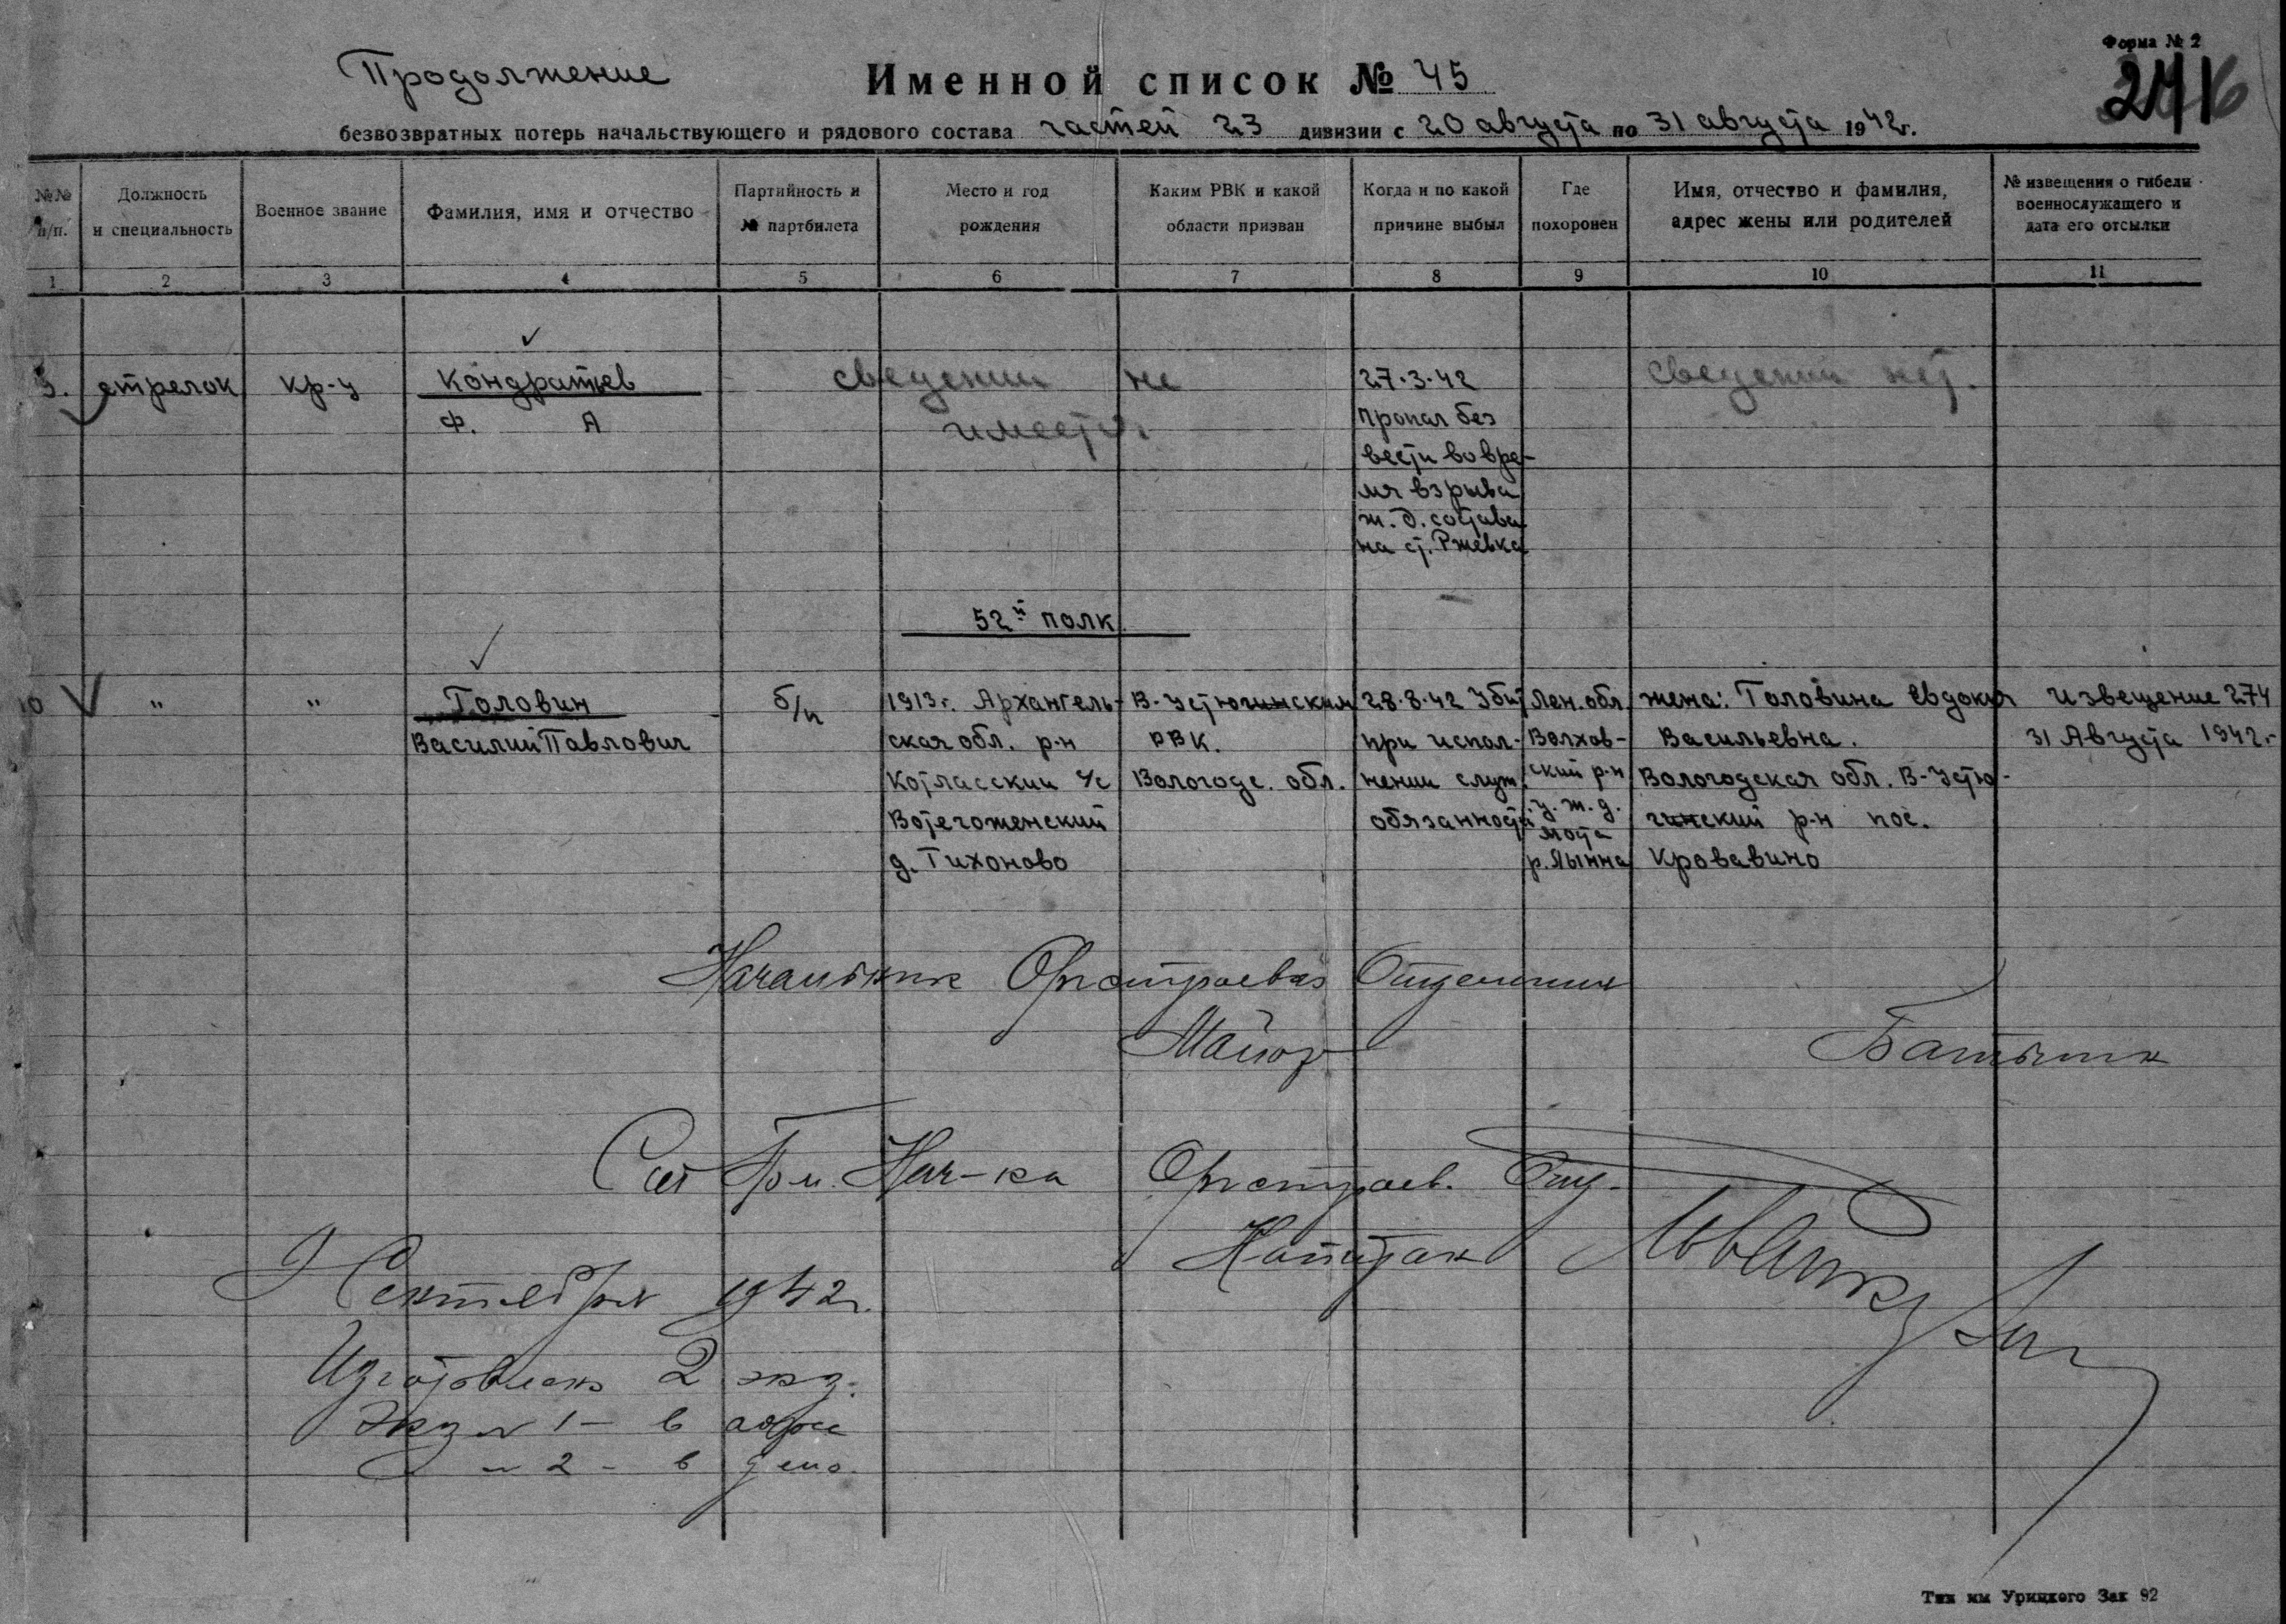 Форма № 2
Продолжение
Именной список № 45
241
безвозвратных потерь начальствующего и рядового состава частей 23 дивизии с 20 августа по 31 августа 1942г.
№№ п/п.
Должность и специальность
Военное звание
Фамилия, имя и отчество
Партийность и № партбилета
Место и год рождения
Каким РВК и какой области призван
Когда и по какой причине выбыл
Где похоронен
Имя, отчество и фамилия, адрес жены или родителей
№ извещения о гибели военнослужащего и дата его отсылки
1 2 3 4 5 6 7 8 9 10 11
9. стрелок кр-ц Кондратьев
Ф. А
сведений не
имеется.
27.3.42
пропал без
вести во вре-
мя взрыва
ж.д. состава
на ст. Ржевка
сведений нет.
52й полк
10 " " Головин
Василий Павлович
б/п
1913г. Архангель-
ская обл. р-н
Котласский с/с
Вотегоженский
д. Тихоново
В-Устюгинским
РВК.
Вологодс. обл.
28.8.42 Убит
при испол-
нении служ.
обязанности
Лен. обл.
Волхов-
ский р-н
у ж.д.
моста
р. Лынна
жена: Головина Евдокия
Васильевна.
Вологодская обл. В-Устю-
гинский р-н пос.
Кровавино
Извещение 274
31 Августа 1942г.
Начальник Оргстроевого Отделения
Майор
Ст Пом. Нач-ка Оргстроев. Отд.
Капитан
1 Сентября 1942г.
Изготовлено 2 экз.
Экз № 1 – в адрес
" – 2 – в дело.
Тип им Урицкого Зак 92